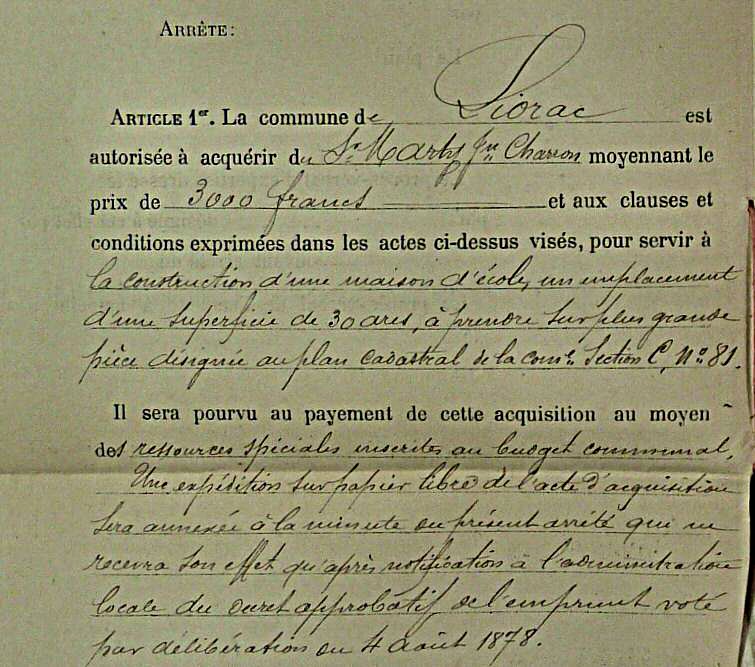 ARRÊTE:
ARTICLE 1er. La commune de Liorac est
autorisée à acquérir du Sr Marty Jn Charron moyennant le
prix de 3000 francs et aux clauses et
conditions exprimées dans les actes ci-dessus visés, pour servir à
la construction d'une maison d'école, un emplacement
d'une superficie de 30 ares, à prendre sur plus grande
pièce désignée au plan cadastral de la comne Section C, No 81.
Il sera pourvu au payement de cette acquisition au moyen
des ressources spéciales inscrites au budget communal.
Une expédition sur papier libre de l'acte d'acquisition
sera annexée à la minute du présent arrêté qui ne
recevra son effet qu'après notification à l'administration
locale du décret approbatif de l'emprunt voté
par délibération du 4 août 1878.